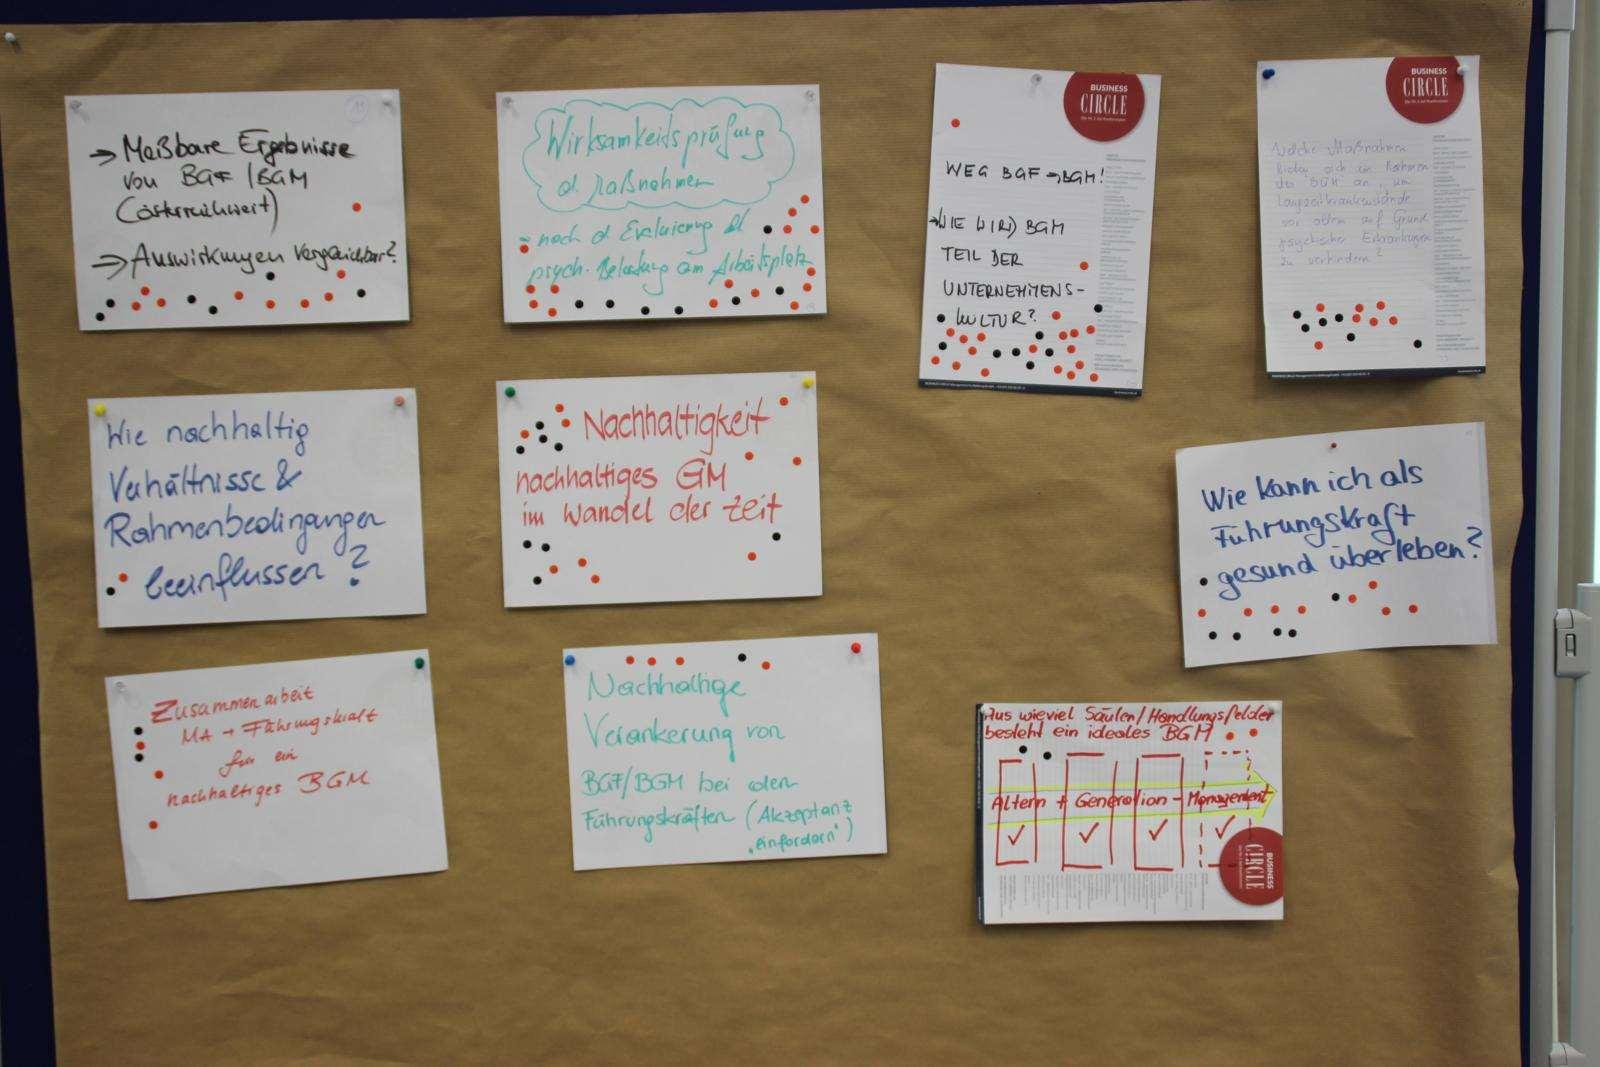 11
→ Meßbare Ergebnisse
von BGF / BGM
(österreichweit)
⇒ Auswirkungen Vergleichbar?
Wirksamkeitsprüfung
d. Maßnahmen
→ nach d. Evaluierung d.
psych. Belastung am Arbeitsplatz
BUSINESS
CIRCLE
WEG BGF → BGM!
→ WIE WIRD BGM
TEIL DER
UNTERNEHMENS-
KULTUR?
BUSINESS
CIRCLE
Welche Maßnahmen
bieten sich im Rahmen
des BGM an, um
Langzeitkrankenstände
vor allem auf Grund
psychischer Erkrankungen
zu verhindern?
Wie nachhaltig
Verhältnisse &
Rahmenbedingungen
beeinflussen?
Nachhaltigkeit
nachhaltiges GM
im Wandel der Zeit
Wie kann ich als
Führungskraft
gesund überleben?
Zusammenarbeit
MA → Führungskraft
für ein
nachhaltiges BGM
Nachhaltige
Verankerung von
BGF/BGM bei den
Führungskräften (Akzeptanz
"einfordern")
Aus wieviel Säulen/Handlungsfelder
besteht ein ideales BGM
Altern + Generation - Management
BUSINESS
CIRCLE